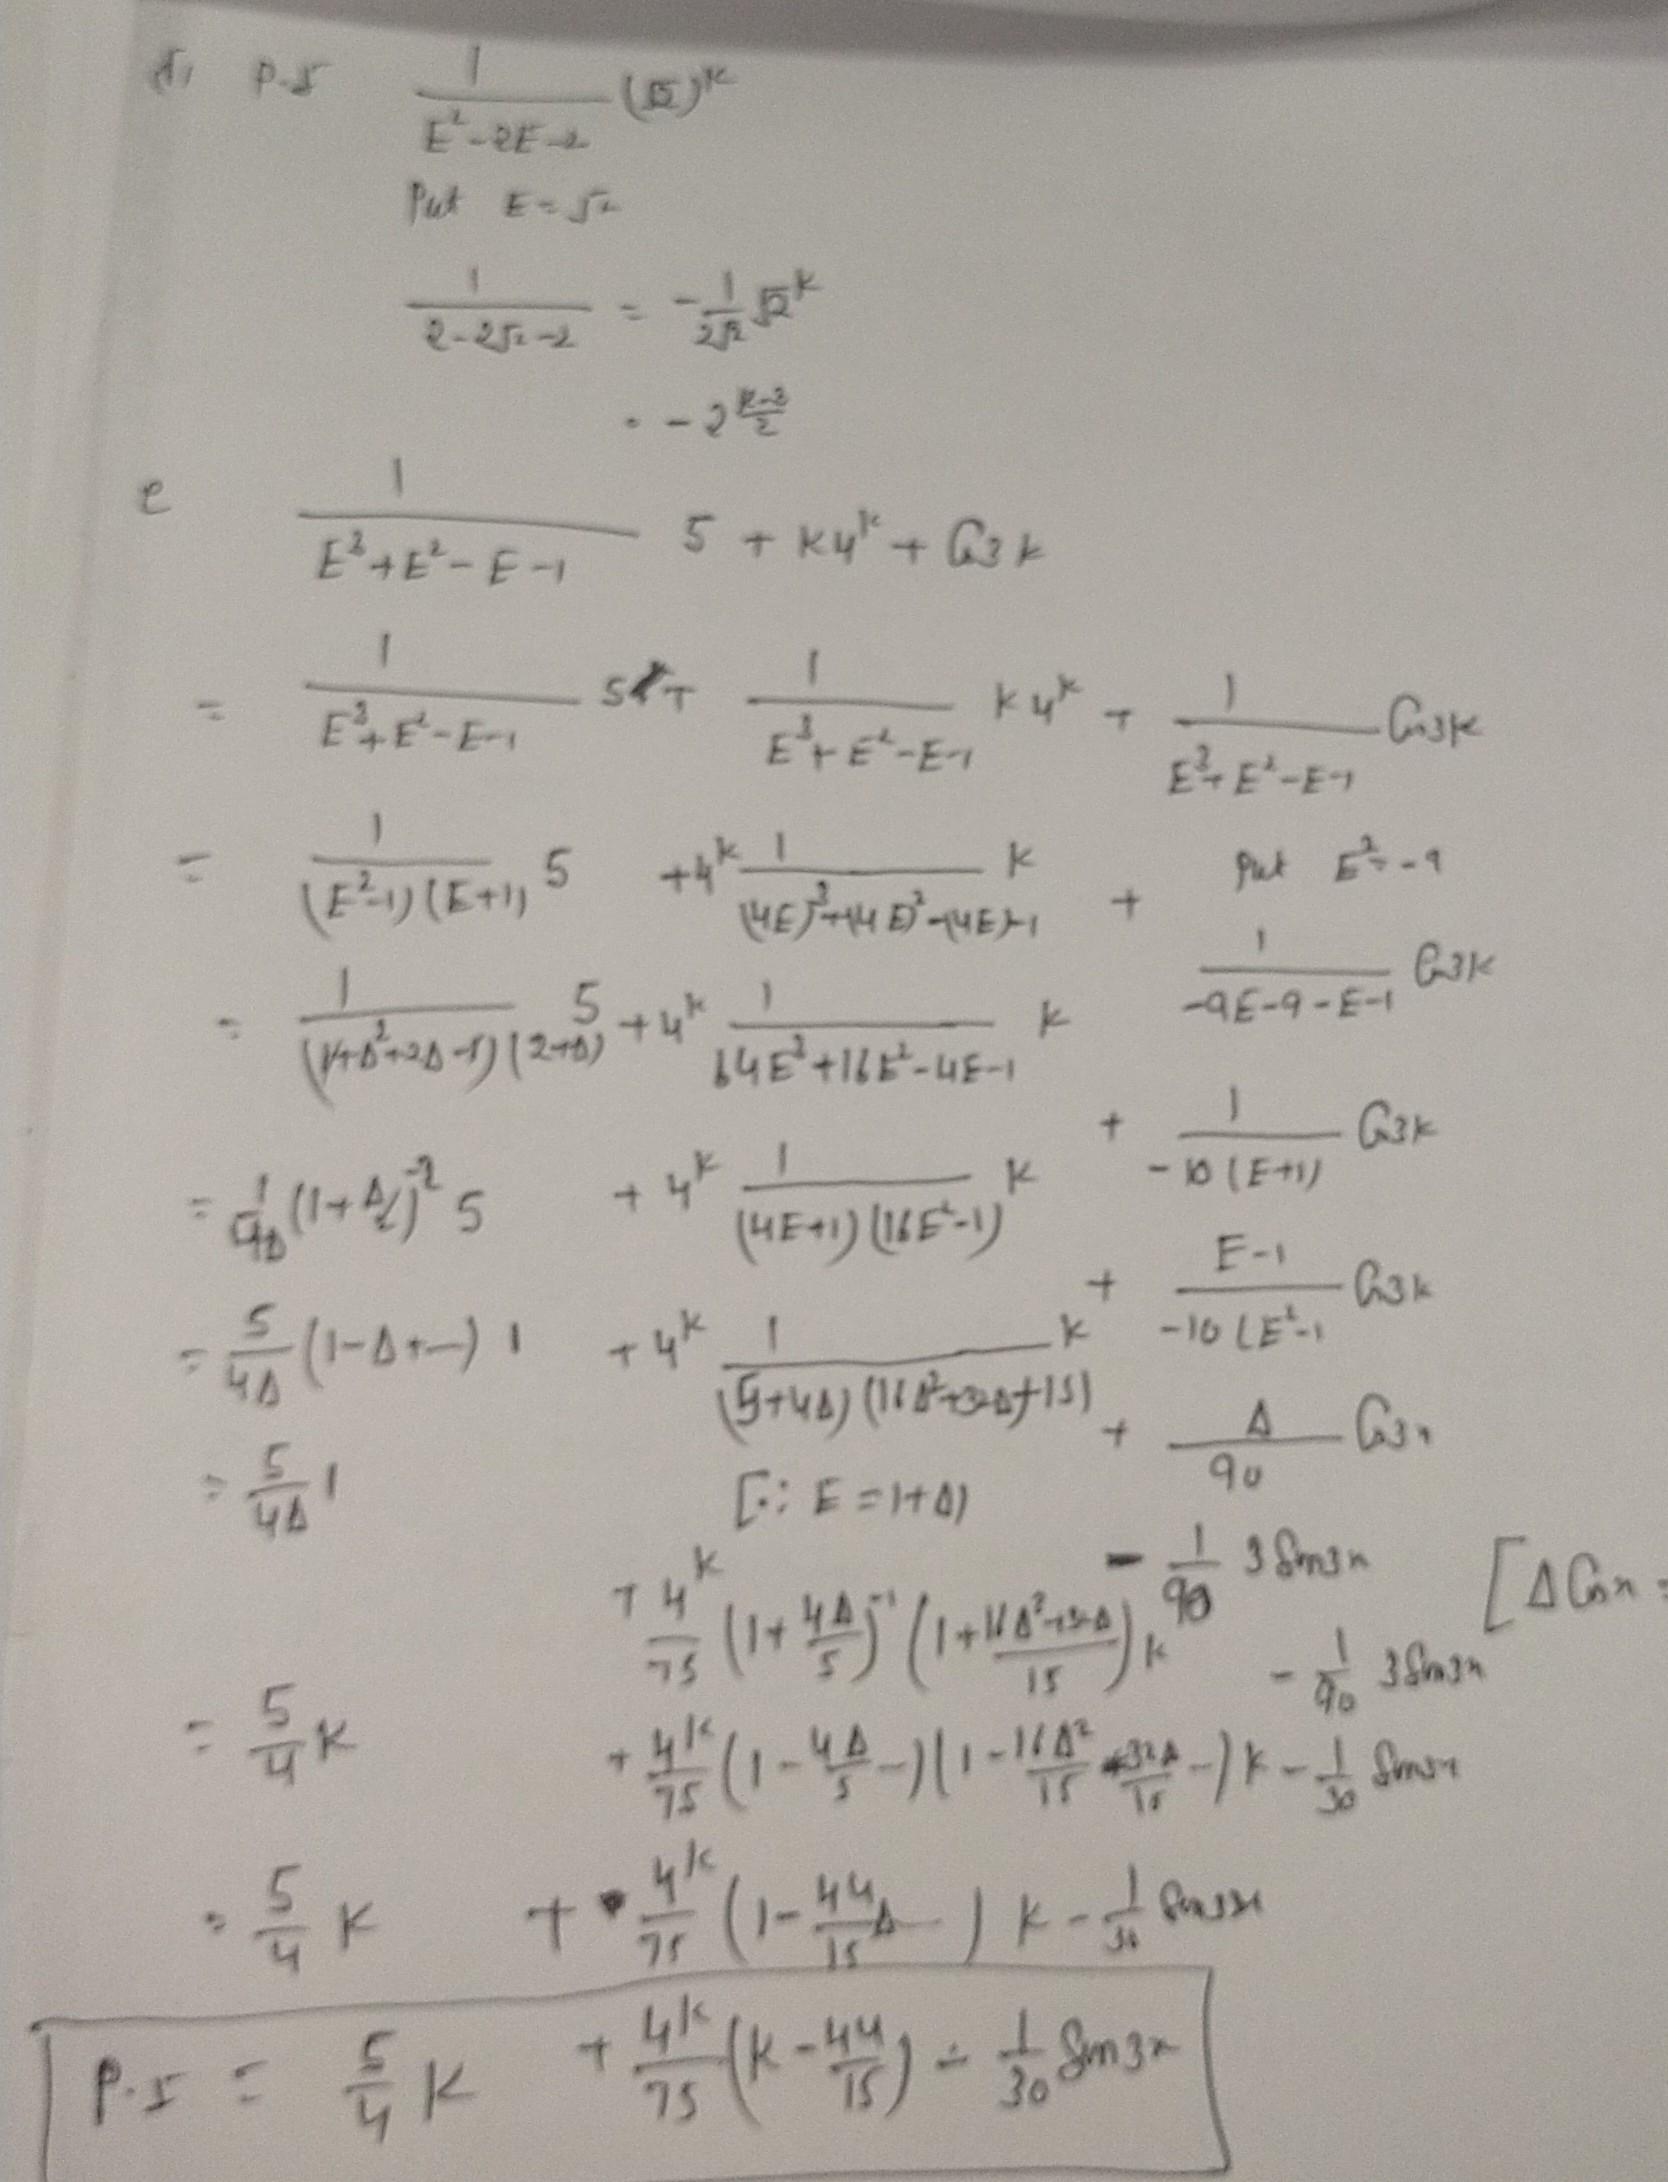 P.I 1/(E²-2E-2) (√2)^k
Put E = √2
1/(2-2√2-2) = -1/(2√2) √2^k
= -2^((k-3)/2)
e 1/(E³+E²-E-1) 5 + k4^k + Cos3k
= 1/(E³+E²-E-1) 5 + 1/(E³+E²-E-1) k4^k + 1/(E³+E²-E-1) Cos3k
= 1/((E²-1)(E+1)) 5 + 4^k 1/((4E)³+(4E)²-(4E)-1) k + Put E² = -9
1/(-9E-9-E-1) Cos3k
= 1/((1+Δ²+2Δ-1)(2+Δ)) 5 + 4^k 1/(64E³+16E²-4E-1) k
+ 1/(-10(E+1)) Cos3k
= 1/(4Δ) (1+Δ/2)^-2 5 + 4^k 1/((4E+1)(16E²-1)) k
+ (E-1)/(-10(E²-1) Cos3k
= 5/(4Δ) (1-Δ+-) 1 + 4^k 1/((5+4Δ)(16Δ²+32Δ+15)) k
+ Δ/90 Cos3x
= 5/(4Δ) 1 [∵ E = 1+Δ]
- 1/90 3 Sin3x [ΔCosx =
+ 4^k/75 (1+4Δ/5)^-1 (1+(16Δ²+32Δ)/15) k - 1/90 3Sin3x
= 5/4 k + 4^k/75 (1-4Δ/5-)(1-16Δ²/15-32Δ/15-) k - 1/30 Sin3x
= 5/4 k + 4^k/75 (1-44/15Δ-) k - 1/30 Sin3x
P.I = 5/4 k + 4^k/75 (k-44/15) - 1/30 Sin3x